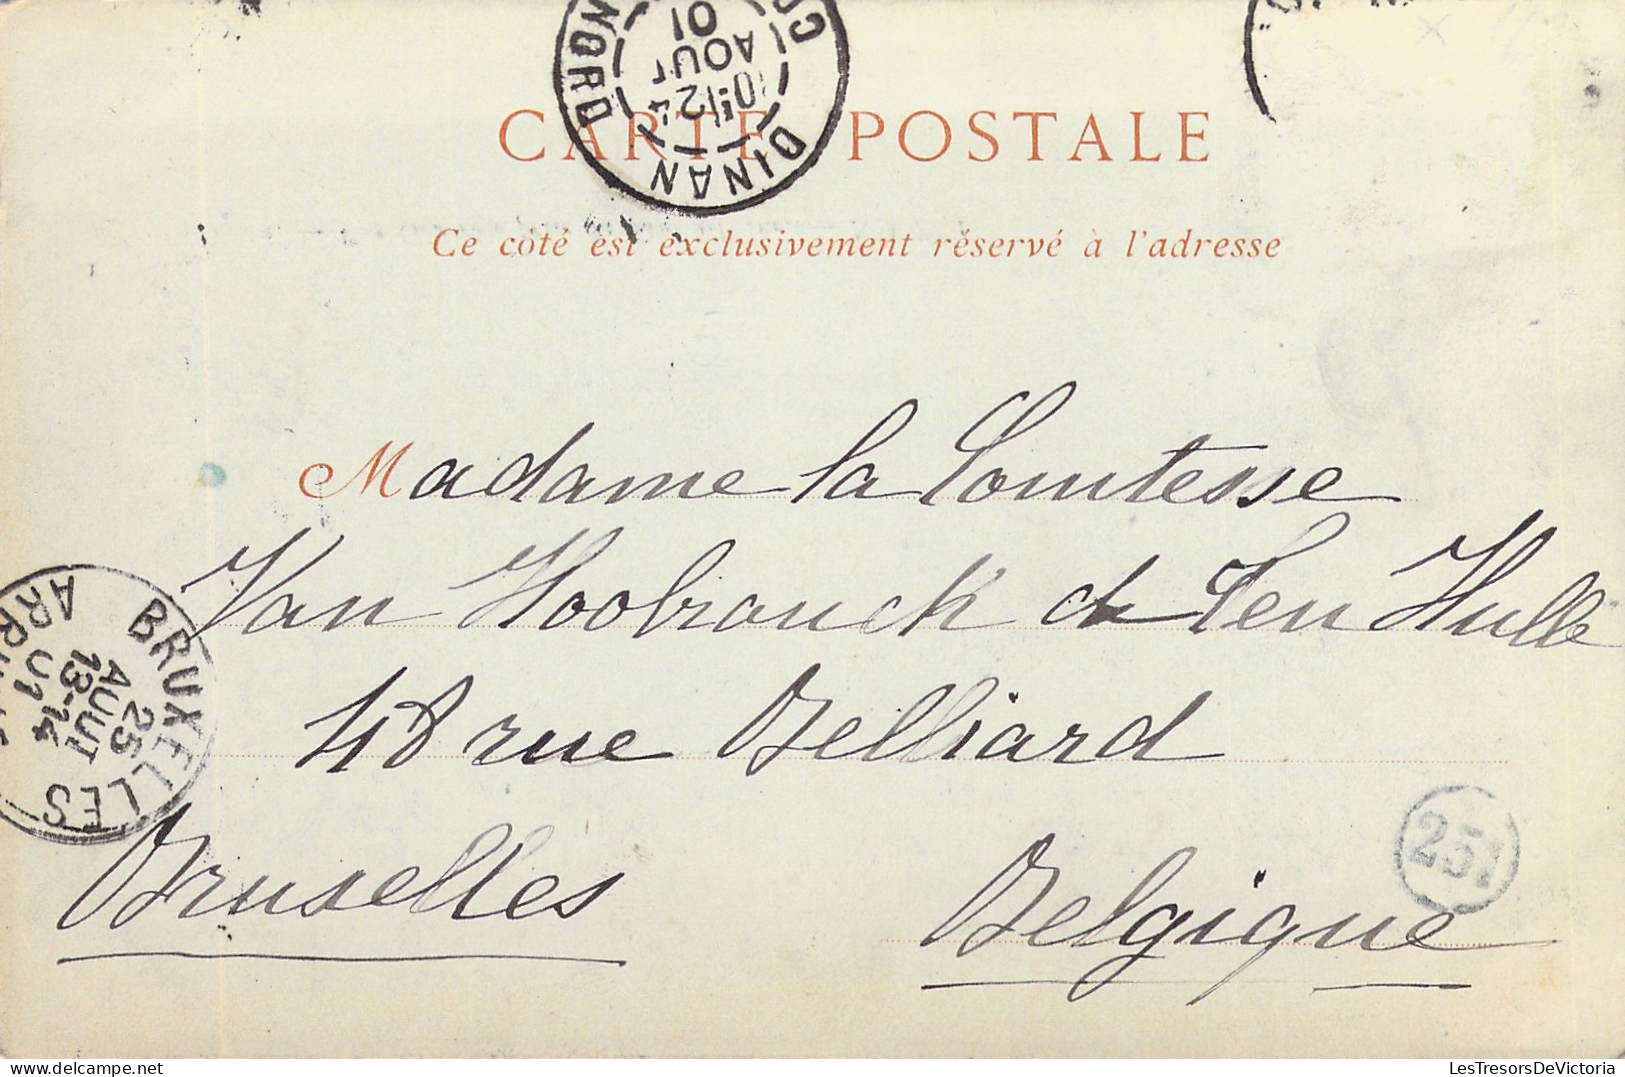 CARTE POSTALE
Ce côté est exclusivement réservé à l'adresse
DINAN
CÔ
NORD
24
AOUT
01
Madame la Comtesse
Van Hoobrouck de Ten Hulle
48 rue Belliard
Bruxelles
Belgique
BRUXELLES
25
AOUT
13-14
01
251
LesTresorsDeVictoria